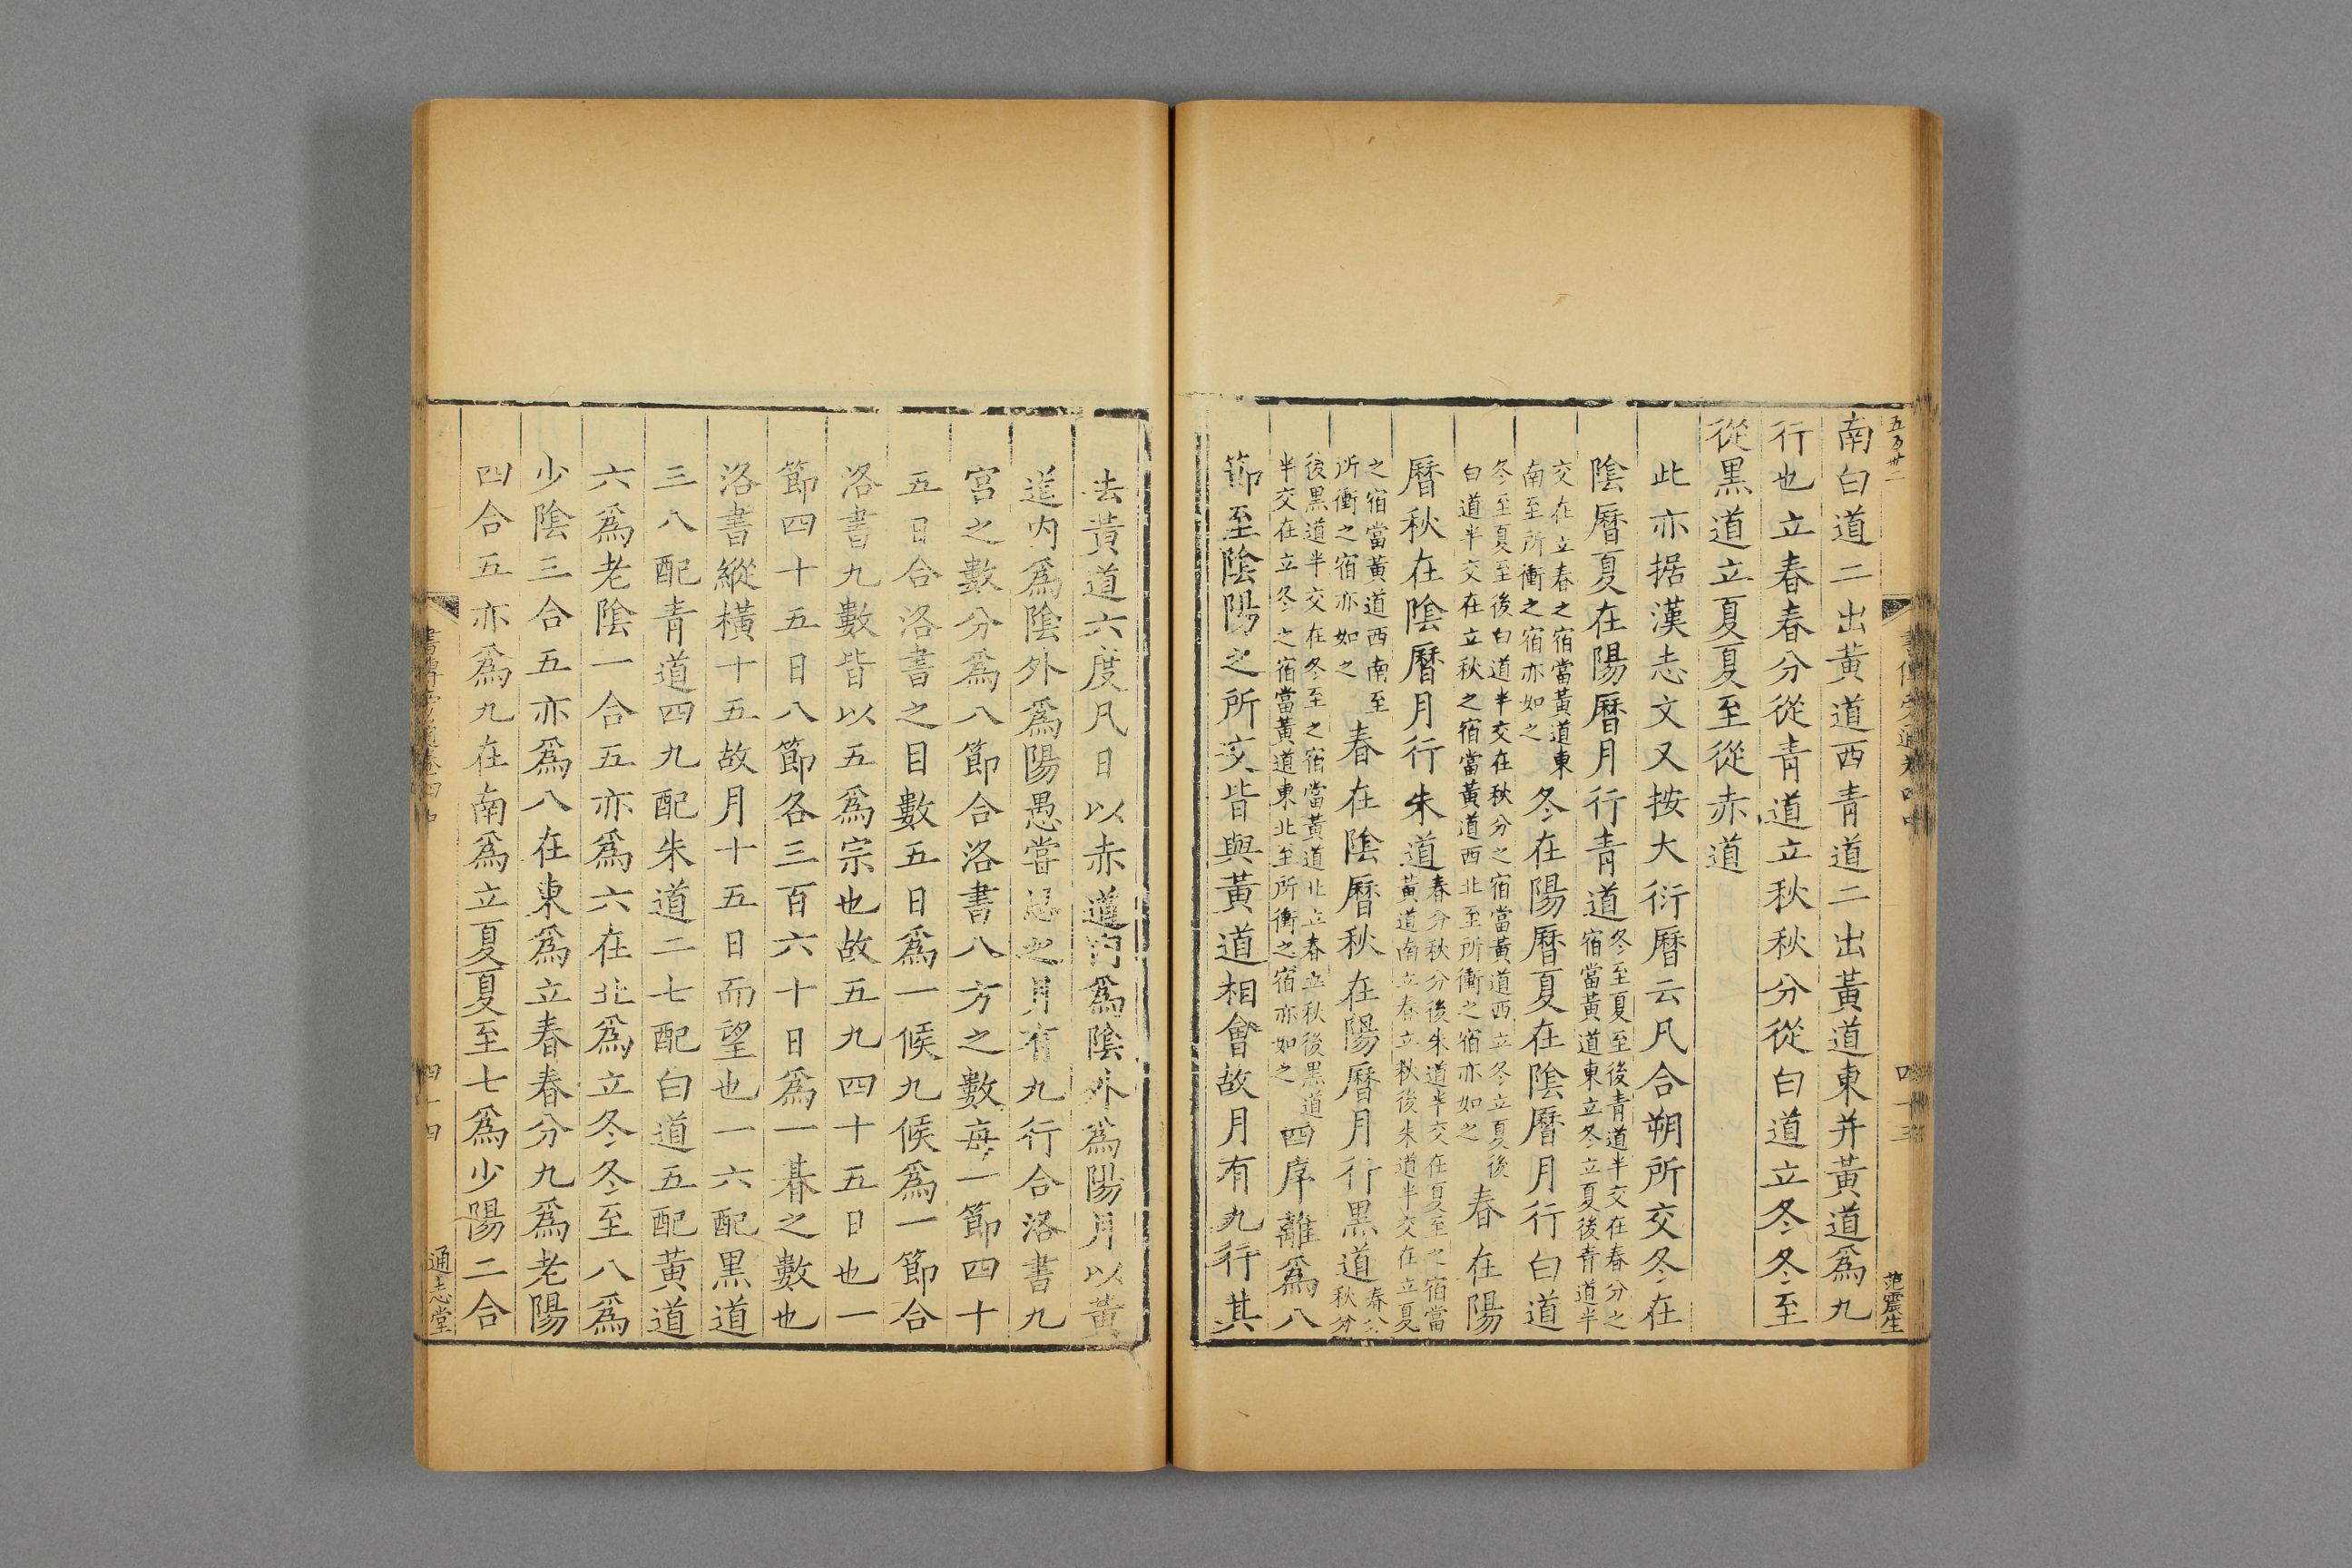 五百廿二
范震生
南白道二出黃道西青道二出黃道東并黃道爲九
行也立春春分從青道立秋秋分從白道立冬冬至
從黑道立夏夏至從赤道
此亦据漢志文又按大衍曆云凡合朔所交冬在
陰曆夏在陽曆月行青道
冬至夏至後青道半交在春分之
宿當黃道東立冬立夏後青道半
交在立春之宿當黃道東
南至所衝之宿亦如之
冬在陽曆夏在陰曆月行白道
冬至夏至後白道半交在秋分之宿當黃道西立冬立夏後
白道半交在立秋之宿當黃道西北至所衝之宿亦如之
春在陽
曆秋在陰曆月行朱道
春分秋分後朱道半交在夏至之宿當
黃道南立春立秋後朱道半交在立夏
之宿當黃道西南至
所衝之宿亦如之
春在陰曆秋在陽曆月行黑道
春分
秋分
後黑道半交在冬至之宿當黃道北立春立秋後黑道
半交在立冬之宿當黃道東北至所衝之宿亦如之
四序離爲八
節至陰陽之所交皆與黃道相會故月有九行其
去黃道六度凡日以赤道內爲陰外爲陽月以黃
道內爲陰外爲陽愚嘗思之月有九行合洛書九
宮之數分爲八節合洛書八方之數每一節四十
五日合洛書之目數五日爲一候九候爲一節合
洛書九數皆以五爲宗也故五九四十五日也一
節四十五日八節各三百六十日爲一朞之數也
洛書縱橫十五故月十五日而望也一六配黑道
三八配青道四九配朱道二七配白道五配黃道
六爲老陰一合五亦爲六在北爲立冬冬至八爲
少陰三合五亦爲八在東爲立春春分九爲老陽
四合五亦爲九在南爲立夏夏至七爲少陽二合
四十四
通志堂